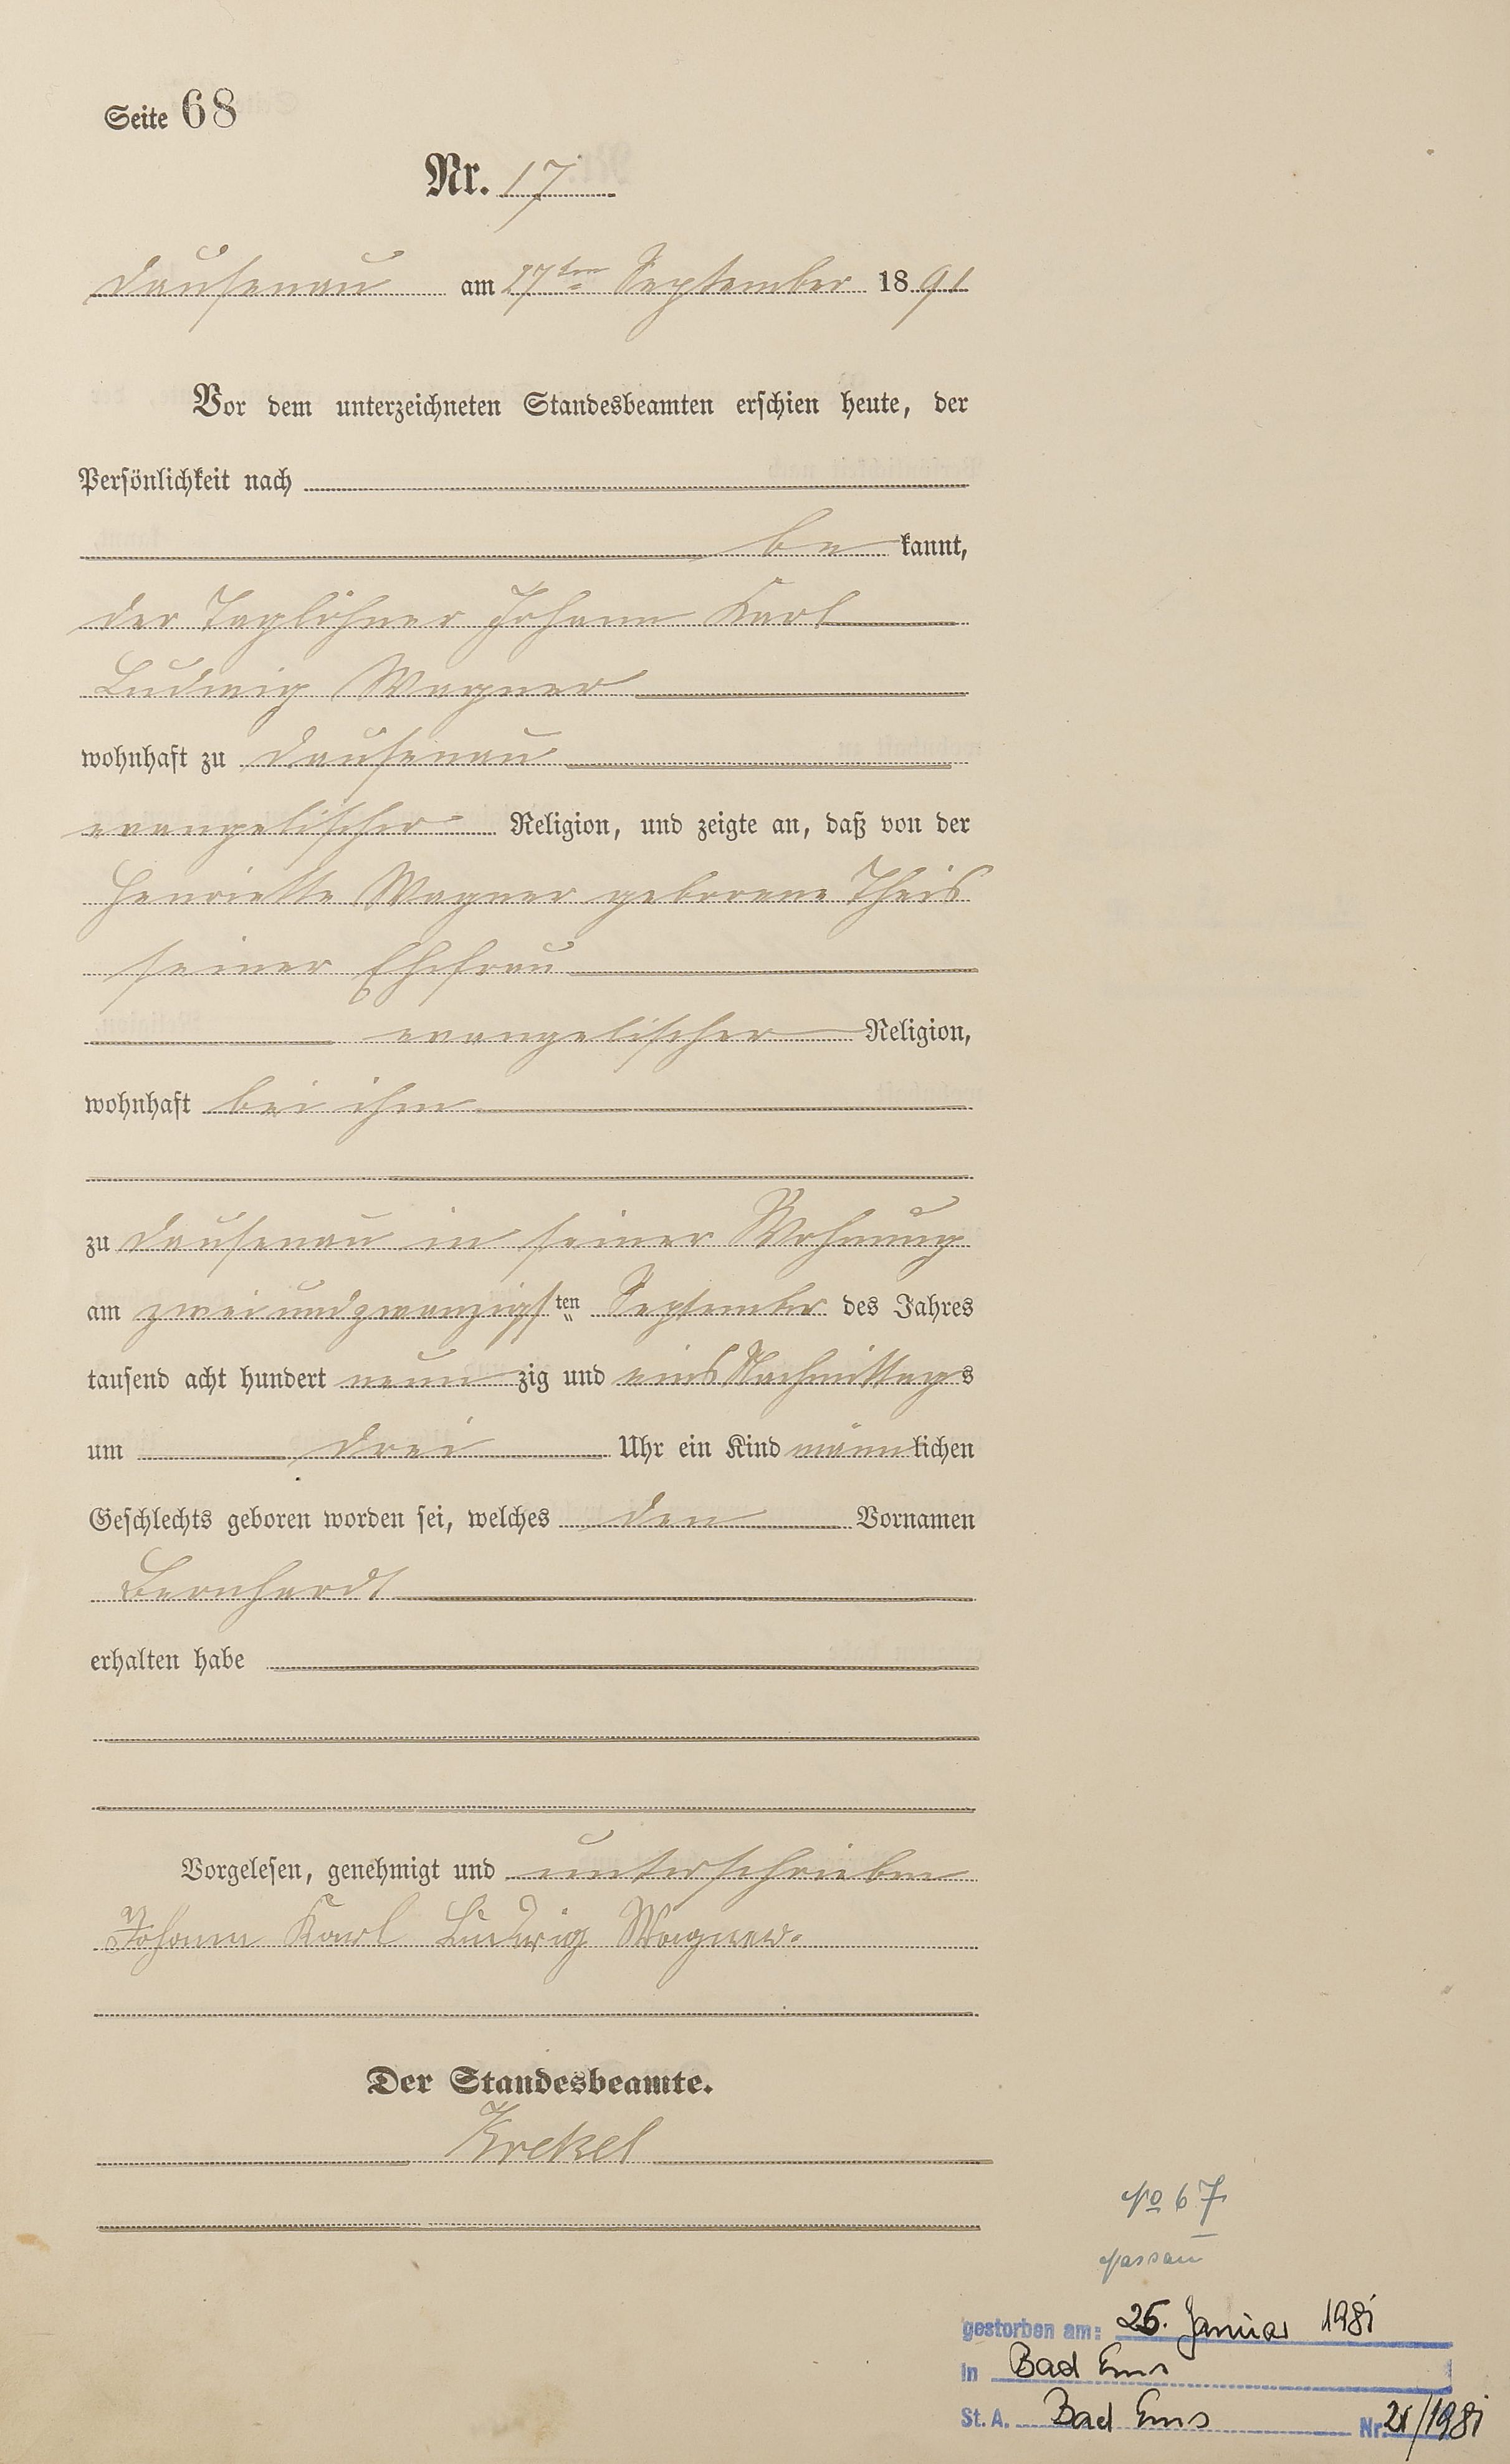 Seite 68
Nr. 17
Dausenau am 27ten September 1891
Vor dem unterzeichneten Standesbeamten erschien heute, der
Persönlichkeit nach
be kannt,
der Taglöhner Johann Karl
Ludwig Wagner
wohnhaft zu Dausenau
evangelischer Religion, und zeigte an, daß von der
Henriette Wagner geborene Theis
seiner Ehefrau
evangelischer Religion,
wohnhaft bei ihm
zu Dausenau in seiner Wohnung
am zweiundzwanzigsten September des Jahres
tausend acht hundert neunzig und eins Nachmittags
um drei Uhr ein Kind männlichen
Geschlechts geboren worden sei, welches den Vornamen
Bernhardt
erhalten habe
Vorgelesen, genehmigt und unterschrieben
Johann Karl Ludwig Wagner.
Der Standesbeamte.
Krekel
No 67
Nassau
gestorben am: 25. Januar 1981
in Bad Ems
St. A. Bad Ems Nr. 21/1981